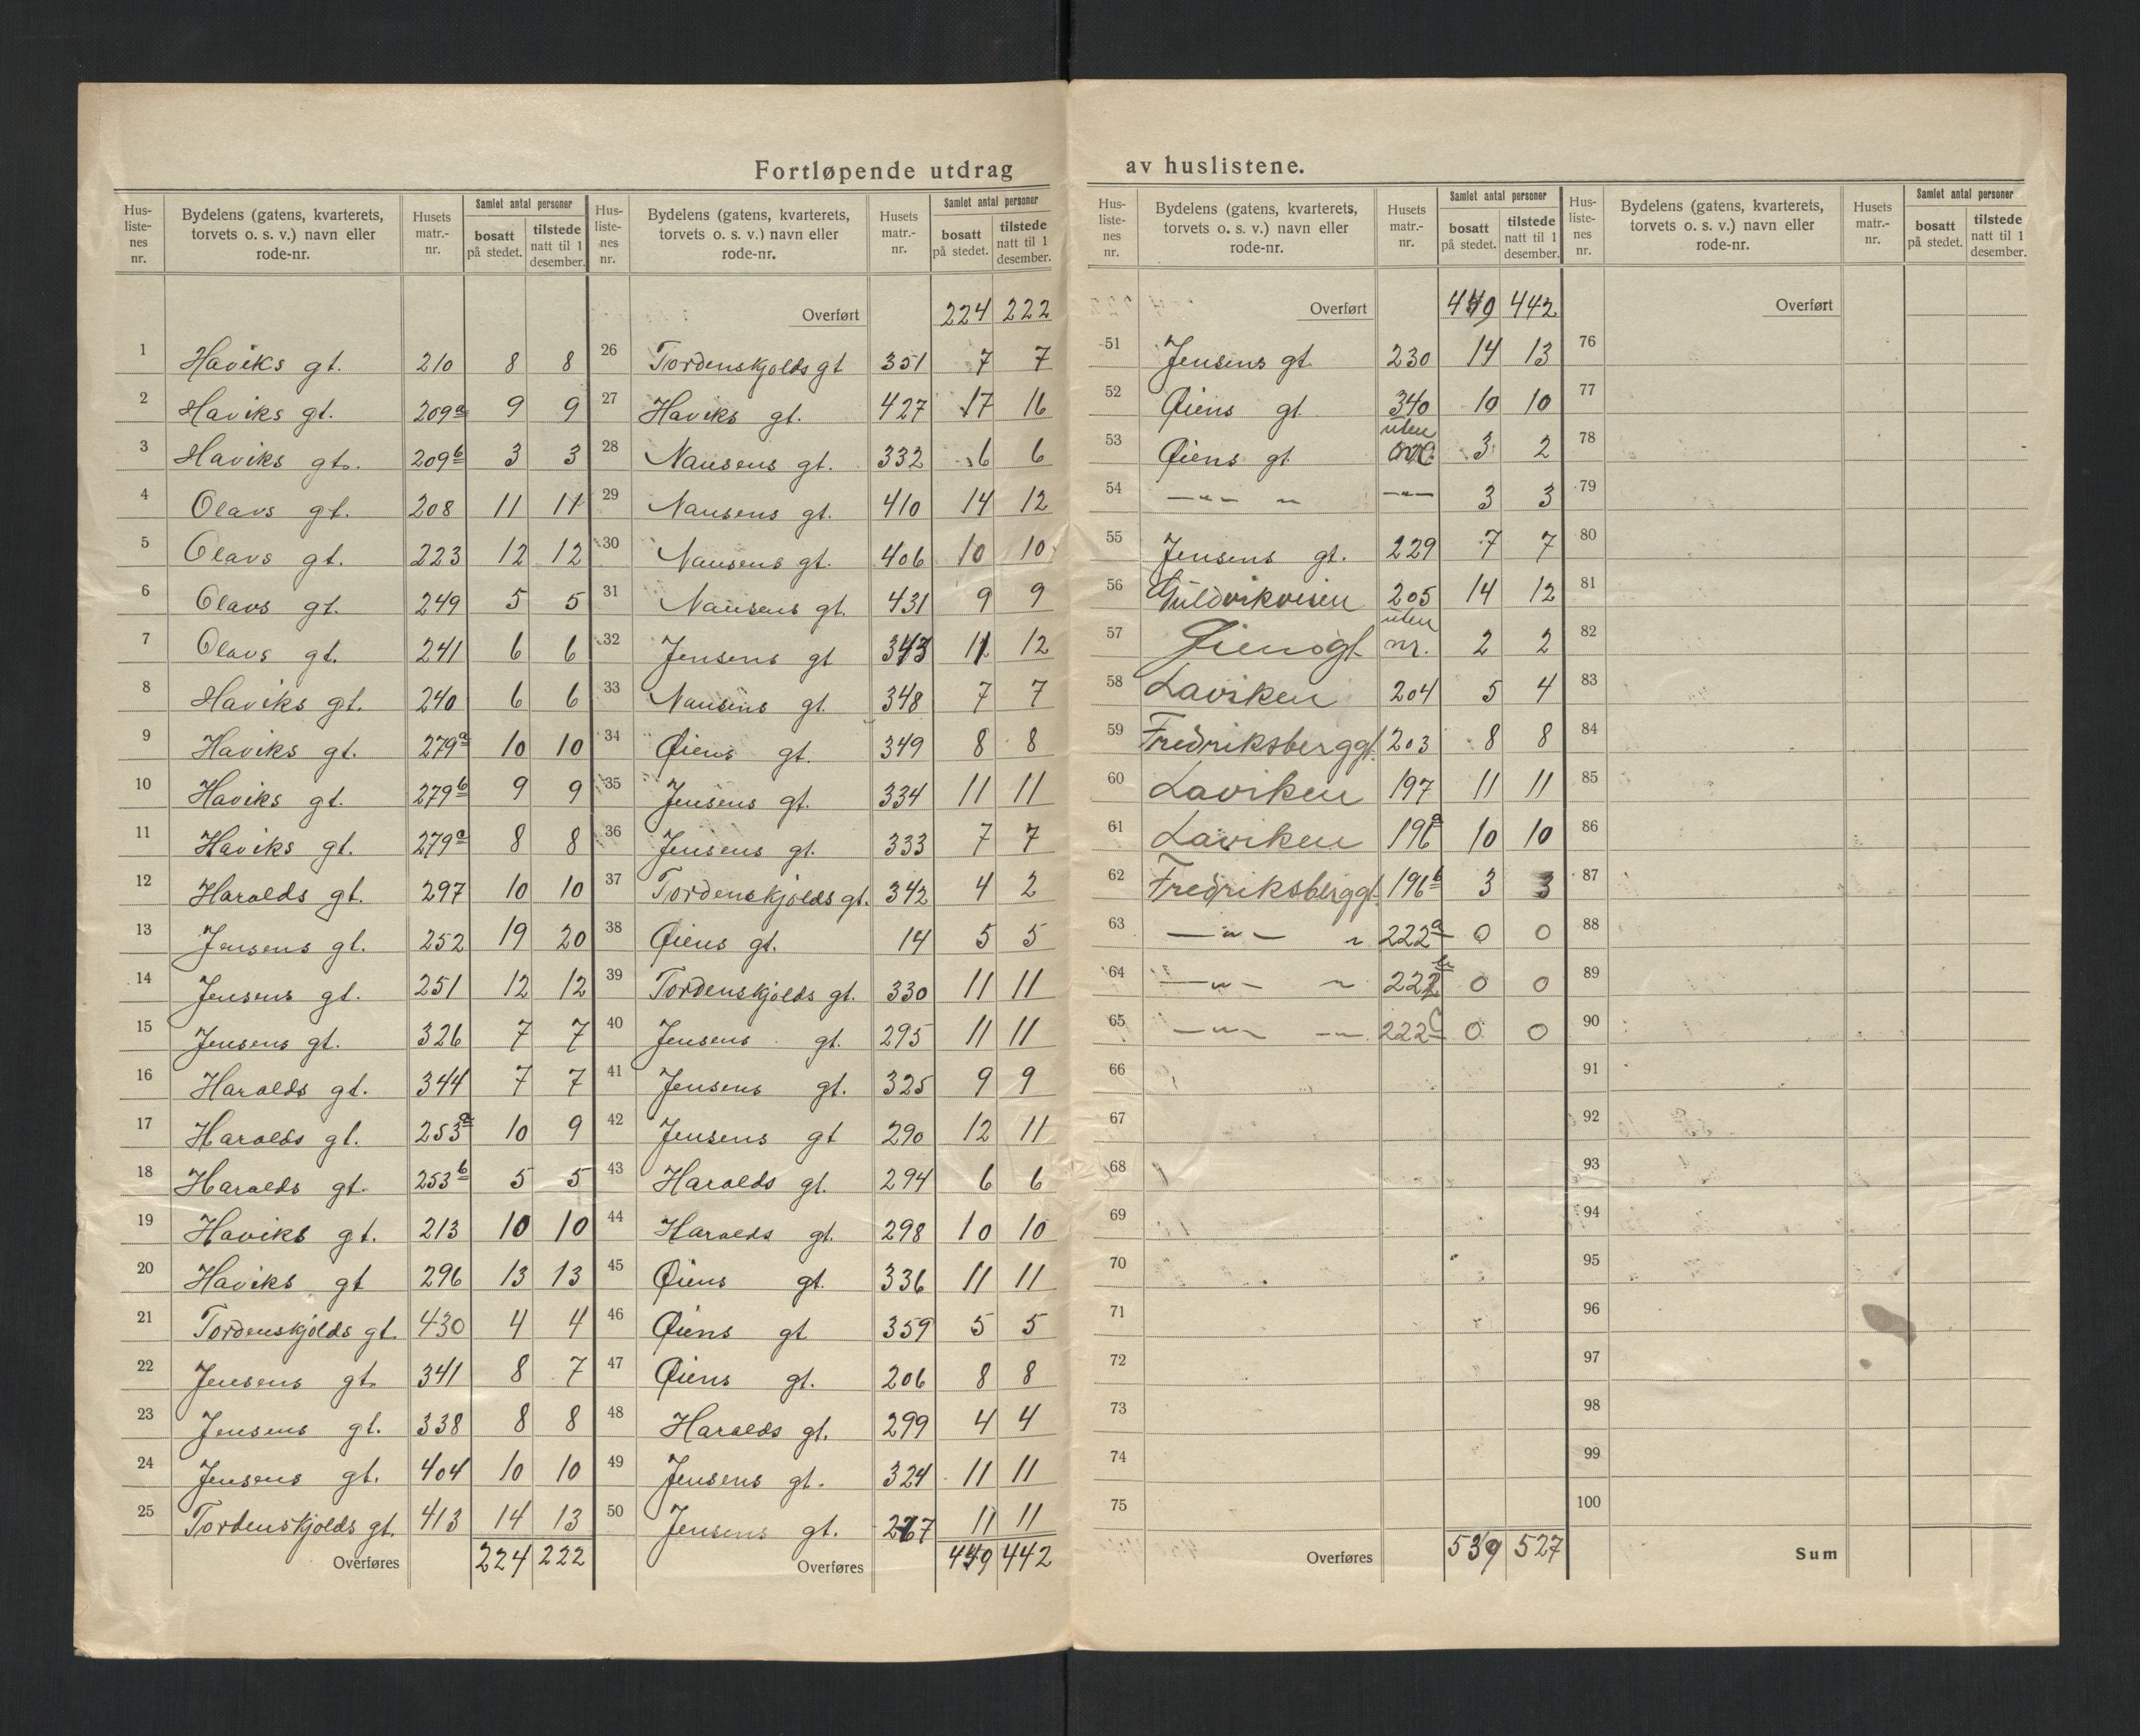 Fortløpende utdrag av huslistene.
Hus-listenes nr. Bydelens (gatens, kvarterets, torvets o. s. v.) navn eller rode-nr. Husets matr.-nr. Samlet antal personer bosatt på stedet. tilstede natt til 1 desember.
1 Haviks gt. 210 8 8
2 Haviks gt. 209a 9 9
3 Haviks gt. 209b 3 3
4 Olavs gt. 208 11 11
5 Olavs gt. 223 12 12
6 Olavs gt. 249 5 5
7 Olavs gt. 241 6 6
8 Haviks gt. 240 6 6
9 Haviks gt. 279a 10 10
10 Haviks gt. 279b 9 9
11 Haviks gt. 279c 8 8
12 Haralds gt. 297 10 10
13 Jensens gt. 252 19 20
14 Jensens gt. 251 12 12
15 Jensens gt. 326 7 7
16 Haralds gt. 344 7 7
17 Haralds gt. 253a 10 9
18 Haralds gt. 253b 5 5
19 Haviks gt. 213 10 10
20 Haviks gt 296 13 13
21 Tordenskjolds gt. 430 4 4
22 Jensens gt. 341 8 7
23 Jensens gt. 338 8 8
24 Jensens gt. 404 10 10
25 Tordenskjolds gt. 413 14 13
Overføres 224 222
Hus-listenes nr. Bydelens (gatens, kvarterets, torvets o. s. v.) navn eller rode-nr. Husets matr.-nr. Samlet antal personer bosatt på stedet. tilstede natt til 1 desember.
Overført 224 222
26 Tordenskjolds gt 351 7 7
27 Haviks gt. 427 17 16
28 Nansens gt. 332 6 6
29 Nansens gt. 410 14 12
30 Nansens gt. 406 10 10
31 Nansens gt. 431 9 9
32 Jensens gt 343 11 12
33 Nansens gt. 348 7 7
34 Øiens gt. 349 8 8
35 Jensens gt. 334 11 11
36 Jensens gt. 333 7 7
37 Tordenskjolds gt. 342 4 2
38 Øiens gt. 14 5 5
39 Tordenskjolds gt. 330 11 11
40 Jensens gt. 295 11 11
41 Jensens gt. 325 9 9
42 Jensens gt 290 12 11
43 Haralds gt. 294 6 6
44 Haralds gt. 298 10 10
45 Øiens gt. 336 11 11
46 Øiens gt 359 5 5
47 Øiens gt. 206 8 8
48 Haralds gt. 299 4 4
49 Jensens gt. 324 11 11
50 Jensens gt. 11 11
Overføres 449 442
Hus-listenes nr. Bydelens (gatens, kvarterets, torvets o. s. v.) navn eller rode-nr. Husets matr.-nr. Samlet antal personer bosatt på stedet. tilstede natt til 1 desember.
Overført 449 442
51 Jensens gt 230 14 13
52 Øiens gt 340 10 10
53 Øiens gt uten 3 2
54 —"— " —"— 3 3
55 Jensens gt. 229 7 7
56 Guldvikveien 205 14 12
57 Øiensgt uten nr. 2 2
58 Laviken 204 5 4
59 Fredriksberggt. 203 8 8
60 Laviken 197 11 11
61 Laviken 196a 10 10
62 Fredriksberggt. 196b 3 3
63 —"— " 222a 0 0
64 —"— " 222b 0 0
65 —"— —"— 222c 0 0
66
67
68
69
70
71
72
73
74
75
Overføres 539 527
Hus-listenes nr. Bydelens (gatens, kvarterets, torvets o. s. v.) navn eller rode-nr. Husets matr.-nr. Samlet antal personer bosatt på stedet. tilstede natt til 1 desember.
Overført
76
77
78
79
80
81
82
83
84
85
86
87
88
89
90
91
92
93
94
95
96
97
98
99
100
Sum